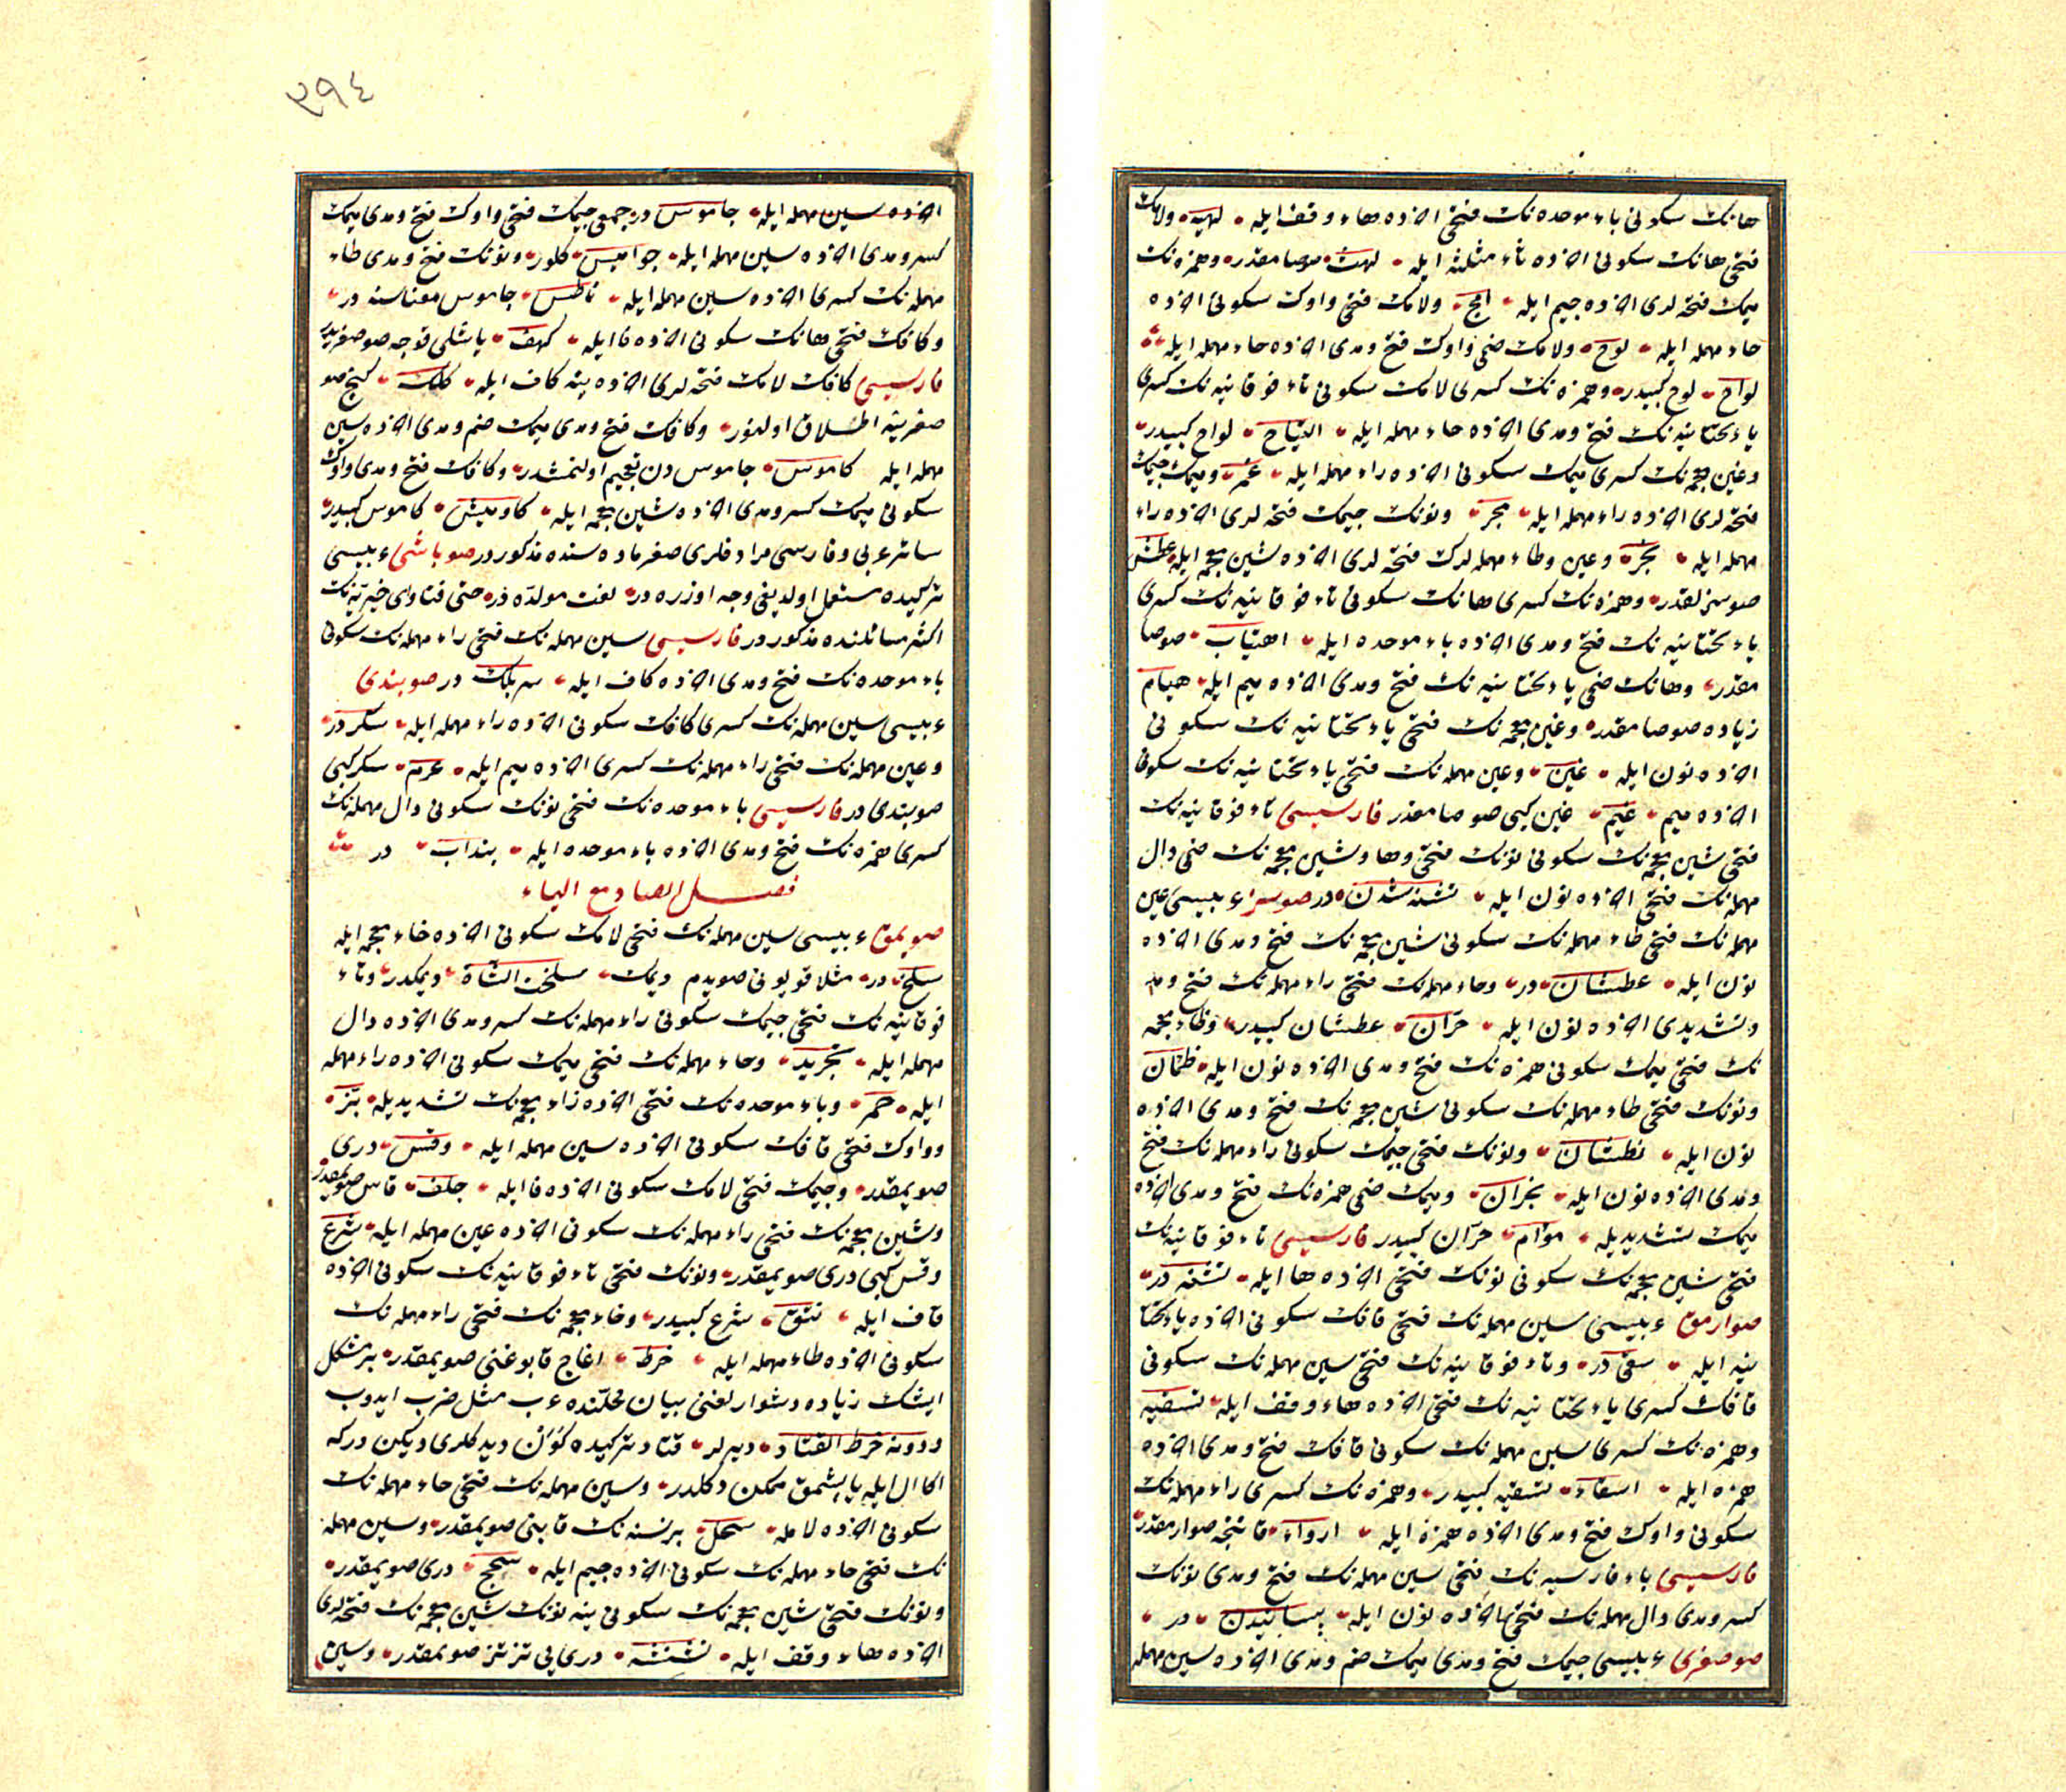 هانك سكونى باء موحده نك فتحى آخرنده هاء وقف ايله لهبه ولامك
فتحى هانك سكونى آخرنده ثاء مثلثه ايله لهث صوصامقدر وهمزه نك
ميمك فتحه لرى آخرنده جيم ايله امج ولامك فتحى واوك سكونى آخرنده
حاء مهمله ايله لوح ولامك ضمى واوك فتح ومدى آخرنده حاء مهمله ايله
لواح لوح كبيدر وهمزه نك كسرى لامك سكونى تاء فوقانيه نك كسرى
ياء تحتانيه نك فتح ومدى آخرنده حاء مهمله ايله التياح لواح كبيدر
وغين معجمه نك كسرى ميمك سكونى آخرنده راء مهمله ايله غمر وميمك جيمك
فتحه لرى آخرنده راء مهمله ايله مجر ونونك جيمك فتحه لرى آخرنده راء
مهمله ايله نجر وعين وطاء مهمله لرك فتحه لرى آخرنده شين معجمه ايله عطش
صوسزلقدر وهمزه نك كسرى هانك سكونى تاء فوقانيه نك كسرى
ياء تحتانيه نك فتح ومدى آخرنده باء موحده ايله اهتياب صوصا
مقدر وهانك ضمى ياء تحتانيه نك فتح ومدى آخرنده ميم ايله هيام
زياده صوصامقدر وغين معجمه نك فتحى ياء تحتانيه نك سكونى
آخرنده نون ايله غين وعين مهمله نك فتحى ياء تحتانيه نك سكونى
آخرنده ميم عيم غين كبى صوصامقدر فارسيسى تاء فوقانيه نك
فتحى شين معجمه نك سكونى نونك فتحى وها وشين معجمه نك ضمى دال
مهمله نك فتحى آخرنده نون ايله تشنه شدن در صوسز عربيسى عين
مهمله نك فتحى طاء مهمله نك سكونى شين معجمه نك فتح ومدى آخرنده
نون ايله عطشان در وحاء مهمله نك فتحى راء مهمله نك فتح ومد
وتشديدى آخرنده نون ايله حرّان عطشان كبيدر وظاء معجمه
نك فتحى ميمك سكونى همزه نك فتح ومدى آخرنده نون ايله ظمآن
ونونك فتحى طاء مهمله نك سكونى شين معجمه نك فتح ومدى آخرنده
نون ايله نطشان ونونك فتحى جيمك سكونى راء مهمله نك فتح
ومدى آخرنده نون ايله نجران وميمك ضمى همزه نك فتح ومدى آخرنده
ميمك تشديديله موآم حرّان كبيدر فارسيسى تاء فوقانيه نك
فتحى شين معجمه نك سكونى نونك فتحى آخرنده ها ايله تشنه در
صوارمق عربيسى سين مهمله نك فتحى قافك سكونى آخرنده ياء تحتا
نيه ايله سقى در وتاء فوقانيه نك فتحى سين مهمله نك سكونى
قافك كسرى ياء تحتانيه نك فتحى آخرنده هاء وقف ايله تسقيه
وهمزه نك كسرى سين مهمله نك سكونى قافك فتح ومدى آخرنده
همزه ايله اسقاء تسقيه كبيدر وهمزه نك كسرى راء مهمله نك
سكونى واوك فتح ومدى آخرنده همزه ايله ارواء قاننجه صوارمقدر
فارسيسى باء فارسيه نك فتحى سين مهمله نك فتح ومدى نونك
كسر ومدى دال مهمله نك فتحى آخرنده نون ايله پسانيدن در
صوصغرى عربيسى جيمك فتح ومدى ميمك ضم ومدى آخرنده سين مهمله
٣٩٤
آخرنده سين مهمله ايله جاموس در جمعى جيمك فتحى واوك فتح ومدى ميمك
كسر ومدى آخرنده سين مهمله ايله جواميس كلور ونونك فتح ومدى طاء
مهمله نك كسرى آخرنده سين مهمله ايله ناطس جاموس معناسنه در
وكافك فتحى هانك سكونى آخرنده فا ايله كهف ياشلى قوجه صوصغريدر
فارسيسى كافك لامك فتحه لرى آخرنده ينه كاف ايله كلك كنج صو
صغرينه اطلاق اولنور وكافك فتح ومدى ميمك ضم ومدى آخرنده سين
مهمله ايله كاموس جاموس دن تعجيم اولنمشدر وكافك فتح ومدى واوك
سكونى ميمك كسر ومدى آخرنده شين معجمه ايله كاوميش كاموس كبيدر
سائر عربى وفارسى مرادفلرى صغر ماده سنده مذكوردر صوباشى عربيسى
تركيده مستعمل اولديغى وجه اوزره در لغت مولده در حتى فتاواى خيريه نك
اكثر مسائلنده مذكوردر فارسيسى سين مهمله نك فتحى راء مهمله نك سكونى
باء موحده نك فتح ومدى آخرنده كاف ايله سربك در صوبندى
عربيسى سين مهمله نك كسرى كافك سكونى آخرنده راء مهمله ايله سكر در
وعين مهمله نك فتحى راء مهمله نك كسرى آخرنده ميم ايله عرم سكر كبى
صوبندى در فارسيسى باء موحده نك فتحى نونك سكونى دال مهمله نك
كسرى همزه نك فتح ومدى آخرنده باء موحده ايله بنداب در
فصل الصاد مع الياء
صويمق عربيسى سين مهمله نك فتحى لامك سكونى آخرنده خاء معجمه ايله
سلخ در مثلا قويونى صويدم ديمك سلخت الشاة ديمكدر وتاء
فوقانيه نك فتحى جيمك سكونى راء مهمله نك كسر ومدى آخرنده دال
مهمله ايله تجريد وحاء مهمله نك فتحى ميمك سكونى آخرنده راء مهمله
ايله حمر وباء موحده نك فتحى آخرنده زاء معجمه نك تشديديله بزّ
وواوك فتحى قافك سكونى آخرنده سين مهمله ايله وقس درى
صويمقدر وجيمك فتحى لامك سكونى آخرنده فا ايله جلف صويمقدر
وشين معجمه نك فتحى راء مهمله نك سكونى آخرنده عين مهمله ايله شرع
وقس كبى درى صويمقدر ونونك فتحى تاء فوقانيه نك سكونى آخرنده
قاف ايله نتق شرع كبيدر وخاء معجمه نك فتحى راء مهمله نك
سكونى آخرنده طاء مهمله ايله خرط اغاج قابوغنى صويمقدر بر مشكل
ايشك زياده دشوارلغنى بيان محلنده عرب مثل ضرب ايدوب
ودونه خرط القتاد ديرلر قتاد تركيده كون ديدكلرى ديكن دركه
اكا ال ايله ياپشمق ممكن دكلدر وسين مهمله نك فتحى حاء مهمله نك
سكونى آخرنده لامله سحل برنسنه نك قابنى صويمقدر وسين مهمله
نك فتحى حاء مهمله نك سكونى آخرنده جيم ايله سحج درى صويمقدر
ونونك فتحى شين معجمه نك سكونى ينه نونك شين معجمه نك فتحه لرى
آخرنده هاء وقف ايله نشنشه درى يى تزتز صويمقدر وسين